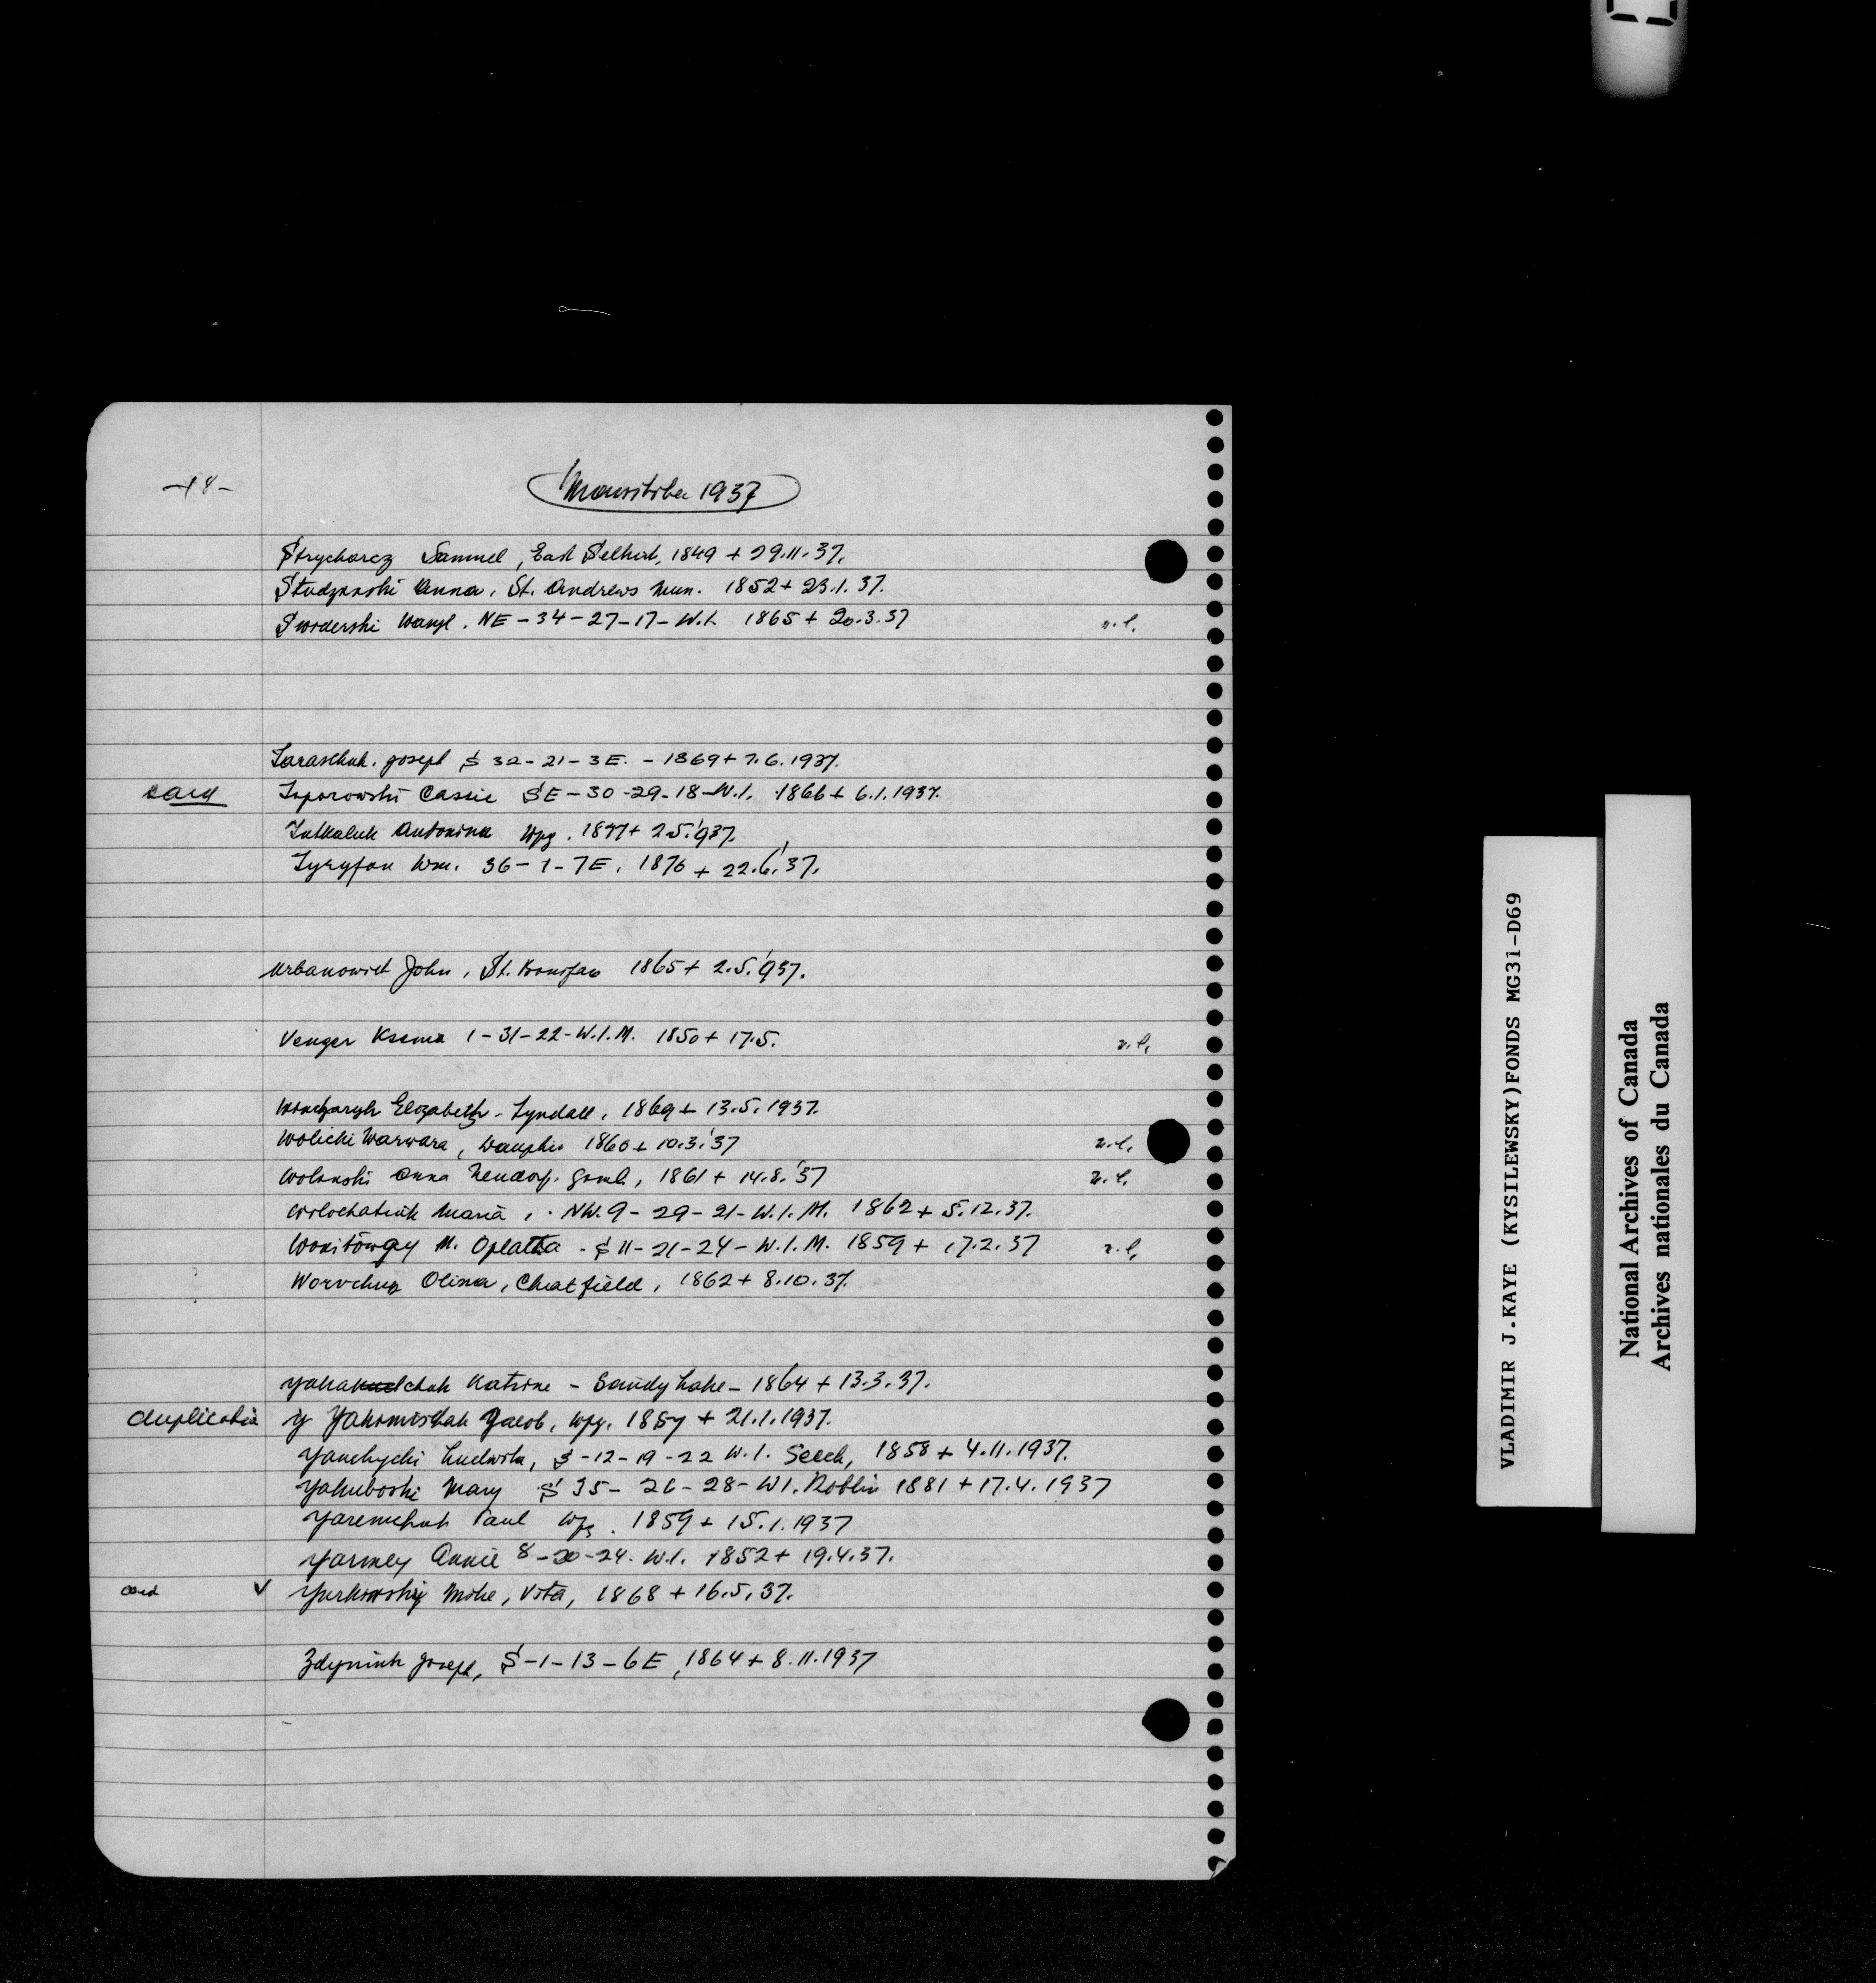 -18-
Manitoba 1937
Strycharcz Samuel, East Selkirk, 1849 + 29.11.37.
Studzinski Anna, St. Andrews Mun. 1852 + 23.1.37.
Swoderski Wasyl. NE-34-27-17-W.1. 1865 + 20.3.37 n.l.
Taraschuk. Joseph S 32-21-3E. - 1869 + 7.6.1937.
card Toporowski Cassie SE-30-29-18-W.1. 1866 + 6.1.1937.
Tutkaluk Antonina Wpg. 1877 + 2.5.'937.
Tyryfon Wm. 36-1-7E, 1876 + 22.6.'37.
Urbanowict John, St. Boniface 1865 + 2.5.'937.
Venger Ksenia 1-31-22-W.1.M. 1850 + 17.5. n.l.
Elizabeth - Tyndall, 1869 + 13.5.1937.
Wolicki Warwara, Dauphin 1860 + 10.3.'37 n.l.
Wolanski Anna 1861 + 14.8.'37 n.l.
Wolochatiuk Maria, . NW.9-29-21-W.1.M. 1862 + 5.12.37.
M. Oplatta - S 11-21-24-W.1.M. 1859 + 17.2.37 n.l.
Olina, Chatfield, 1862 + 8.10.37.
Katrine - Sandy Lake - 1864 + 13.3.37.
duplicate y Yakomischak Jacob, Wpg. 1857 + 21.1.1937.
Yanchycki Ludwika, S-12-19-22 W.1. Seech, 1858 + 4.11.1937.
Yakuboski Mary S 35-26-28-W1. Roblin 1881 + 17.4.1937
Yaremchuk Paul Wpg. 1859 + 15.1.1937
Yarmey Annie 8-20-24. W.1. 1852 + 19.4.37.
card v Yurkowsky Mike, Vita, 1868 + 16.5.37.
Zdyniuk Joseph, S-1-13-6E, 1864 + 8.11.1937
VLADIMIR J.KAYE (KYSILEWSKY)FONDS MG31-D69
National Archives of Canada
Archives nationales du Canada